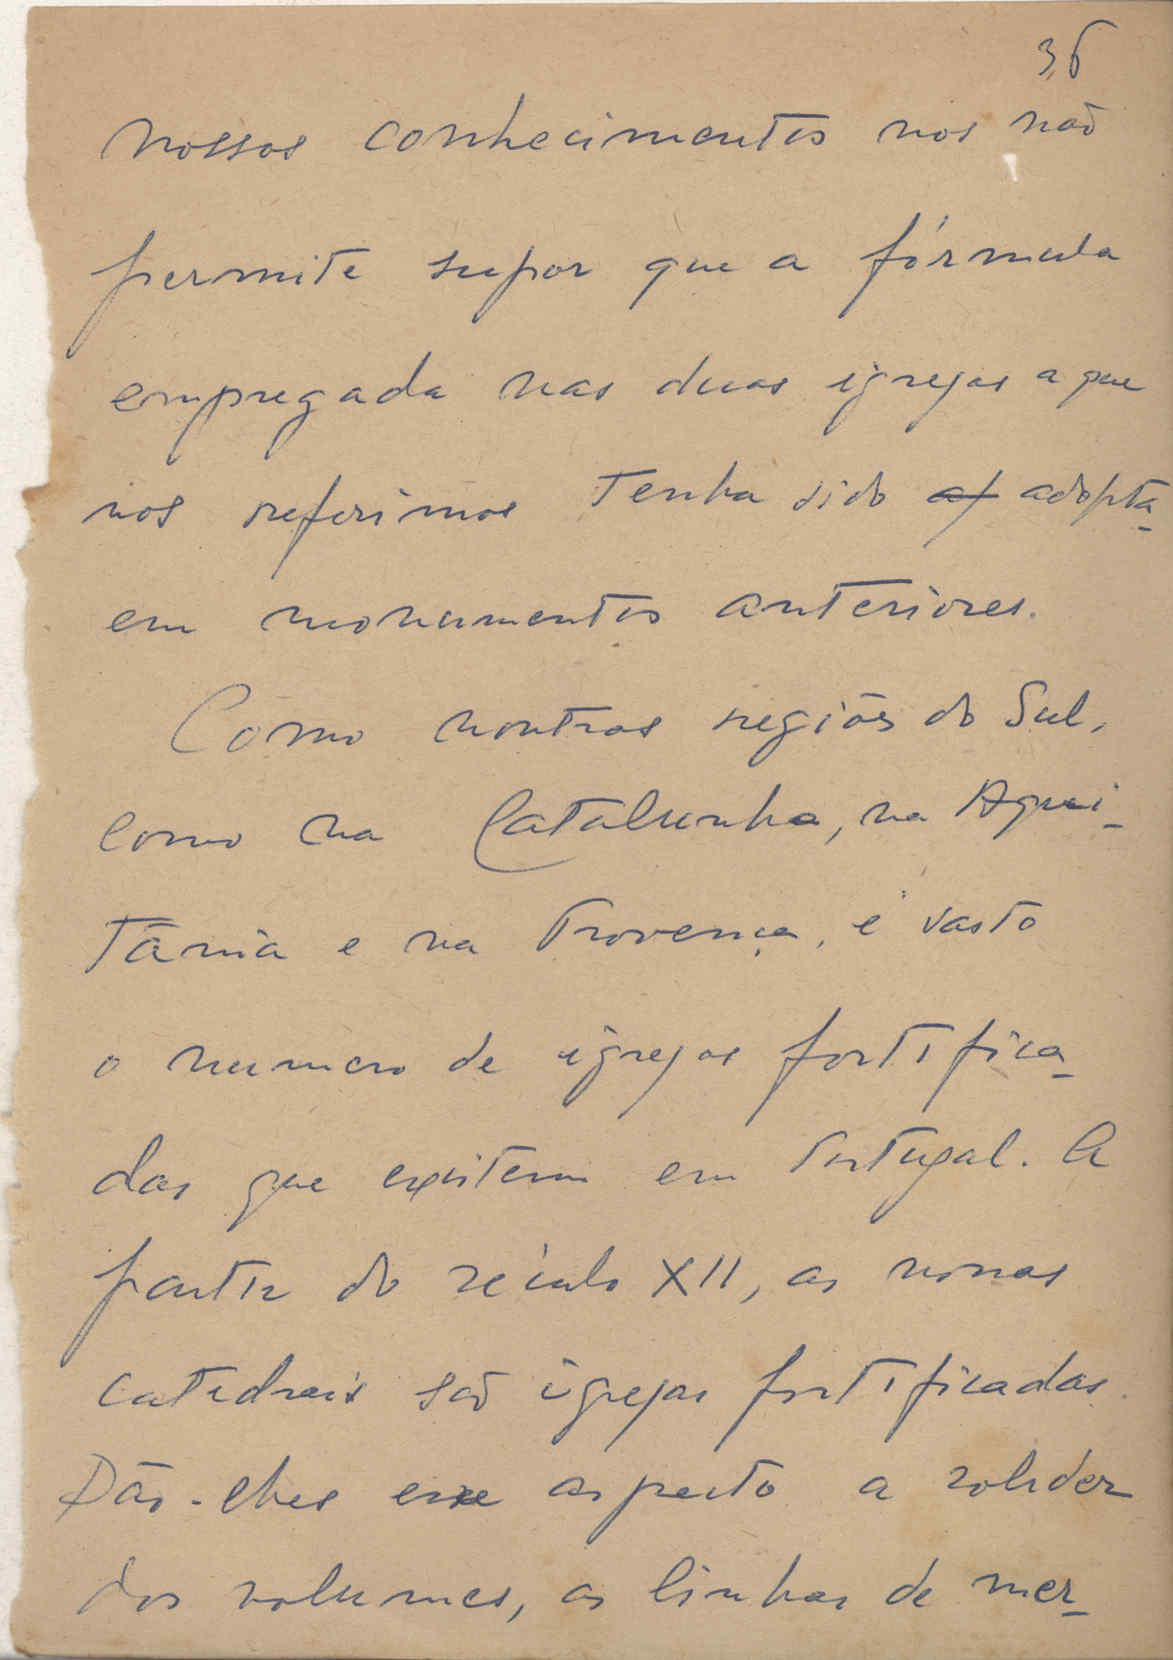 36
nossos conhecimentos nos não
permite supor que a fórmula
empregada nas duas igrejas a que
nos referimos tenha sido af adopta-
em monumentos anteriores.
Como noutras regiões do Sul,
como na Catalunha, na Aqui-
tânia e na Provença, é vasto
o numero de igrejas fortifica-
das que existem em Portugal. A
partir do século XII, as novas
catedrais são igrejas fortificadas.
Dão-lhes esse aspecto a solidez
dos volumes, as linhas de mer-